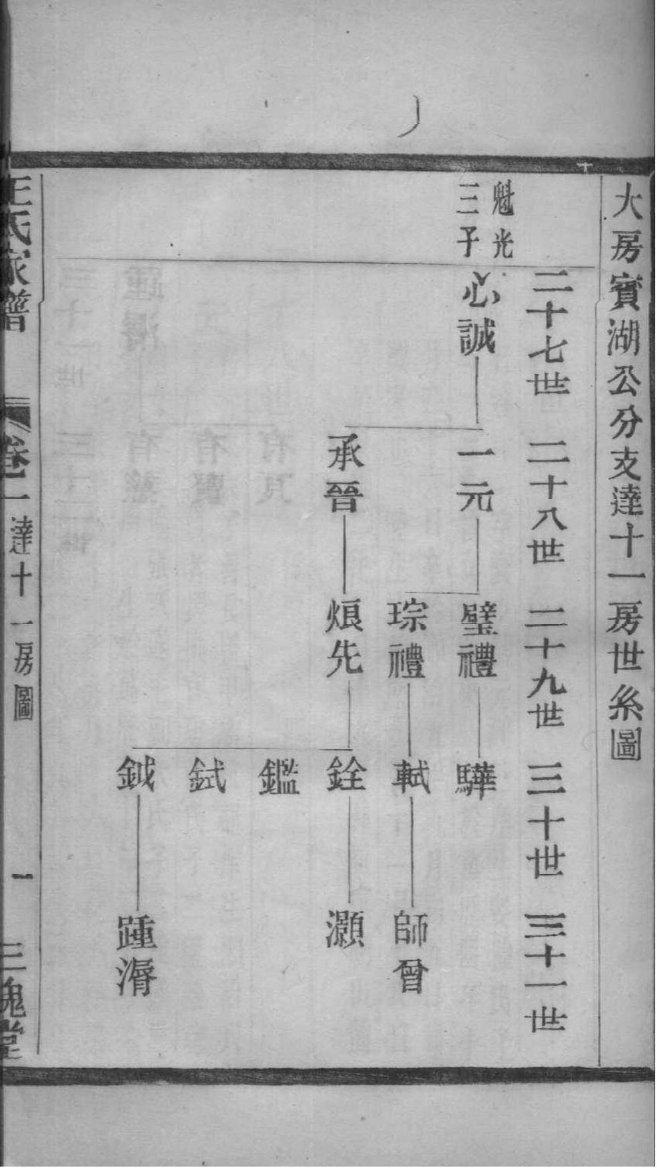 大房賓湖公分支達十一房世系圖
二十七世 二十八世 二十九世 三十世 三十一世
魁光
三子
心誠
一元 承晉
璧禮 琮禮 烺先
驊 軾 銓 鑑 鉽 鉞
師曾 灝 踵潯
王氏家譜 卷一 達十一房圖 一 三槐堂